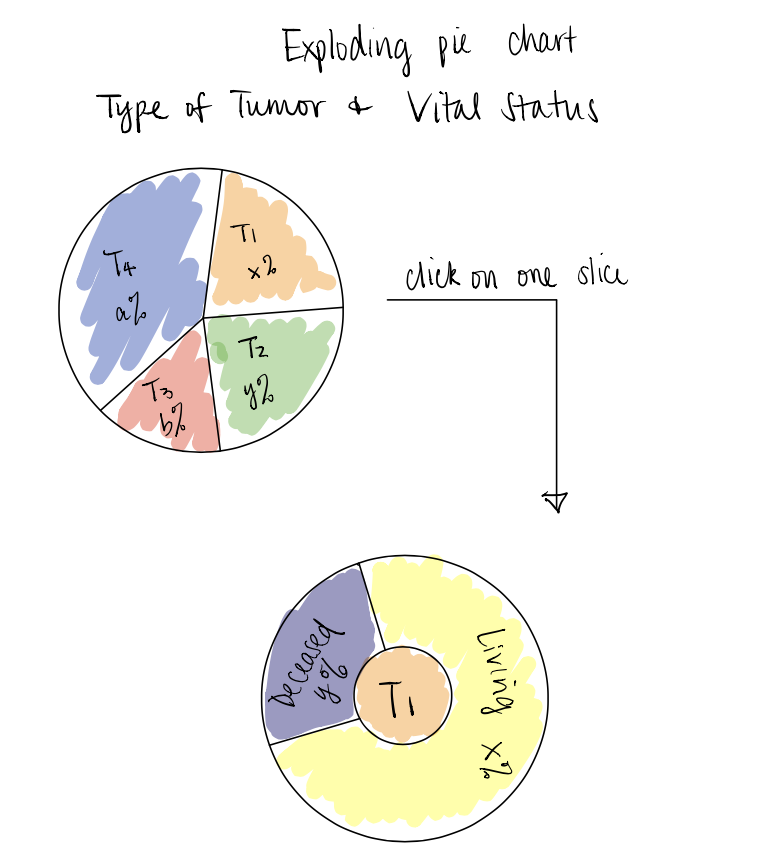 Exploding pie chart
Type of Tumor & Vital Status
T4
a%
T1
x%
click on one slice
T2
y%
T3
b%
Deceased
y%
Living x%
T1